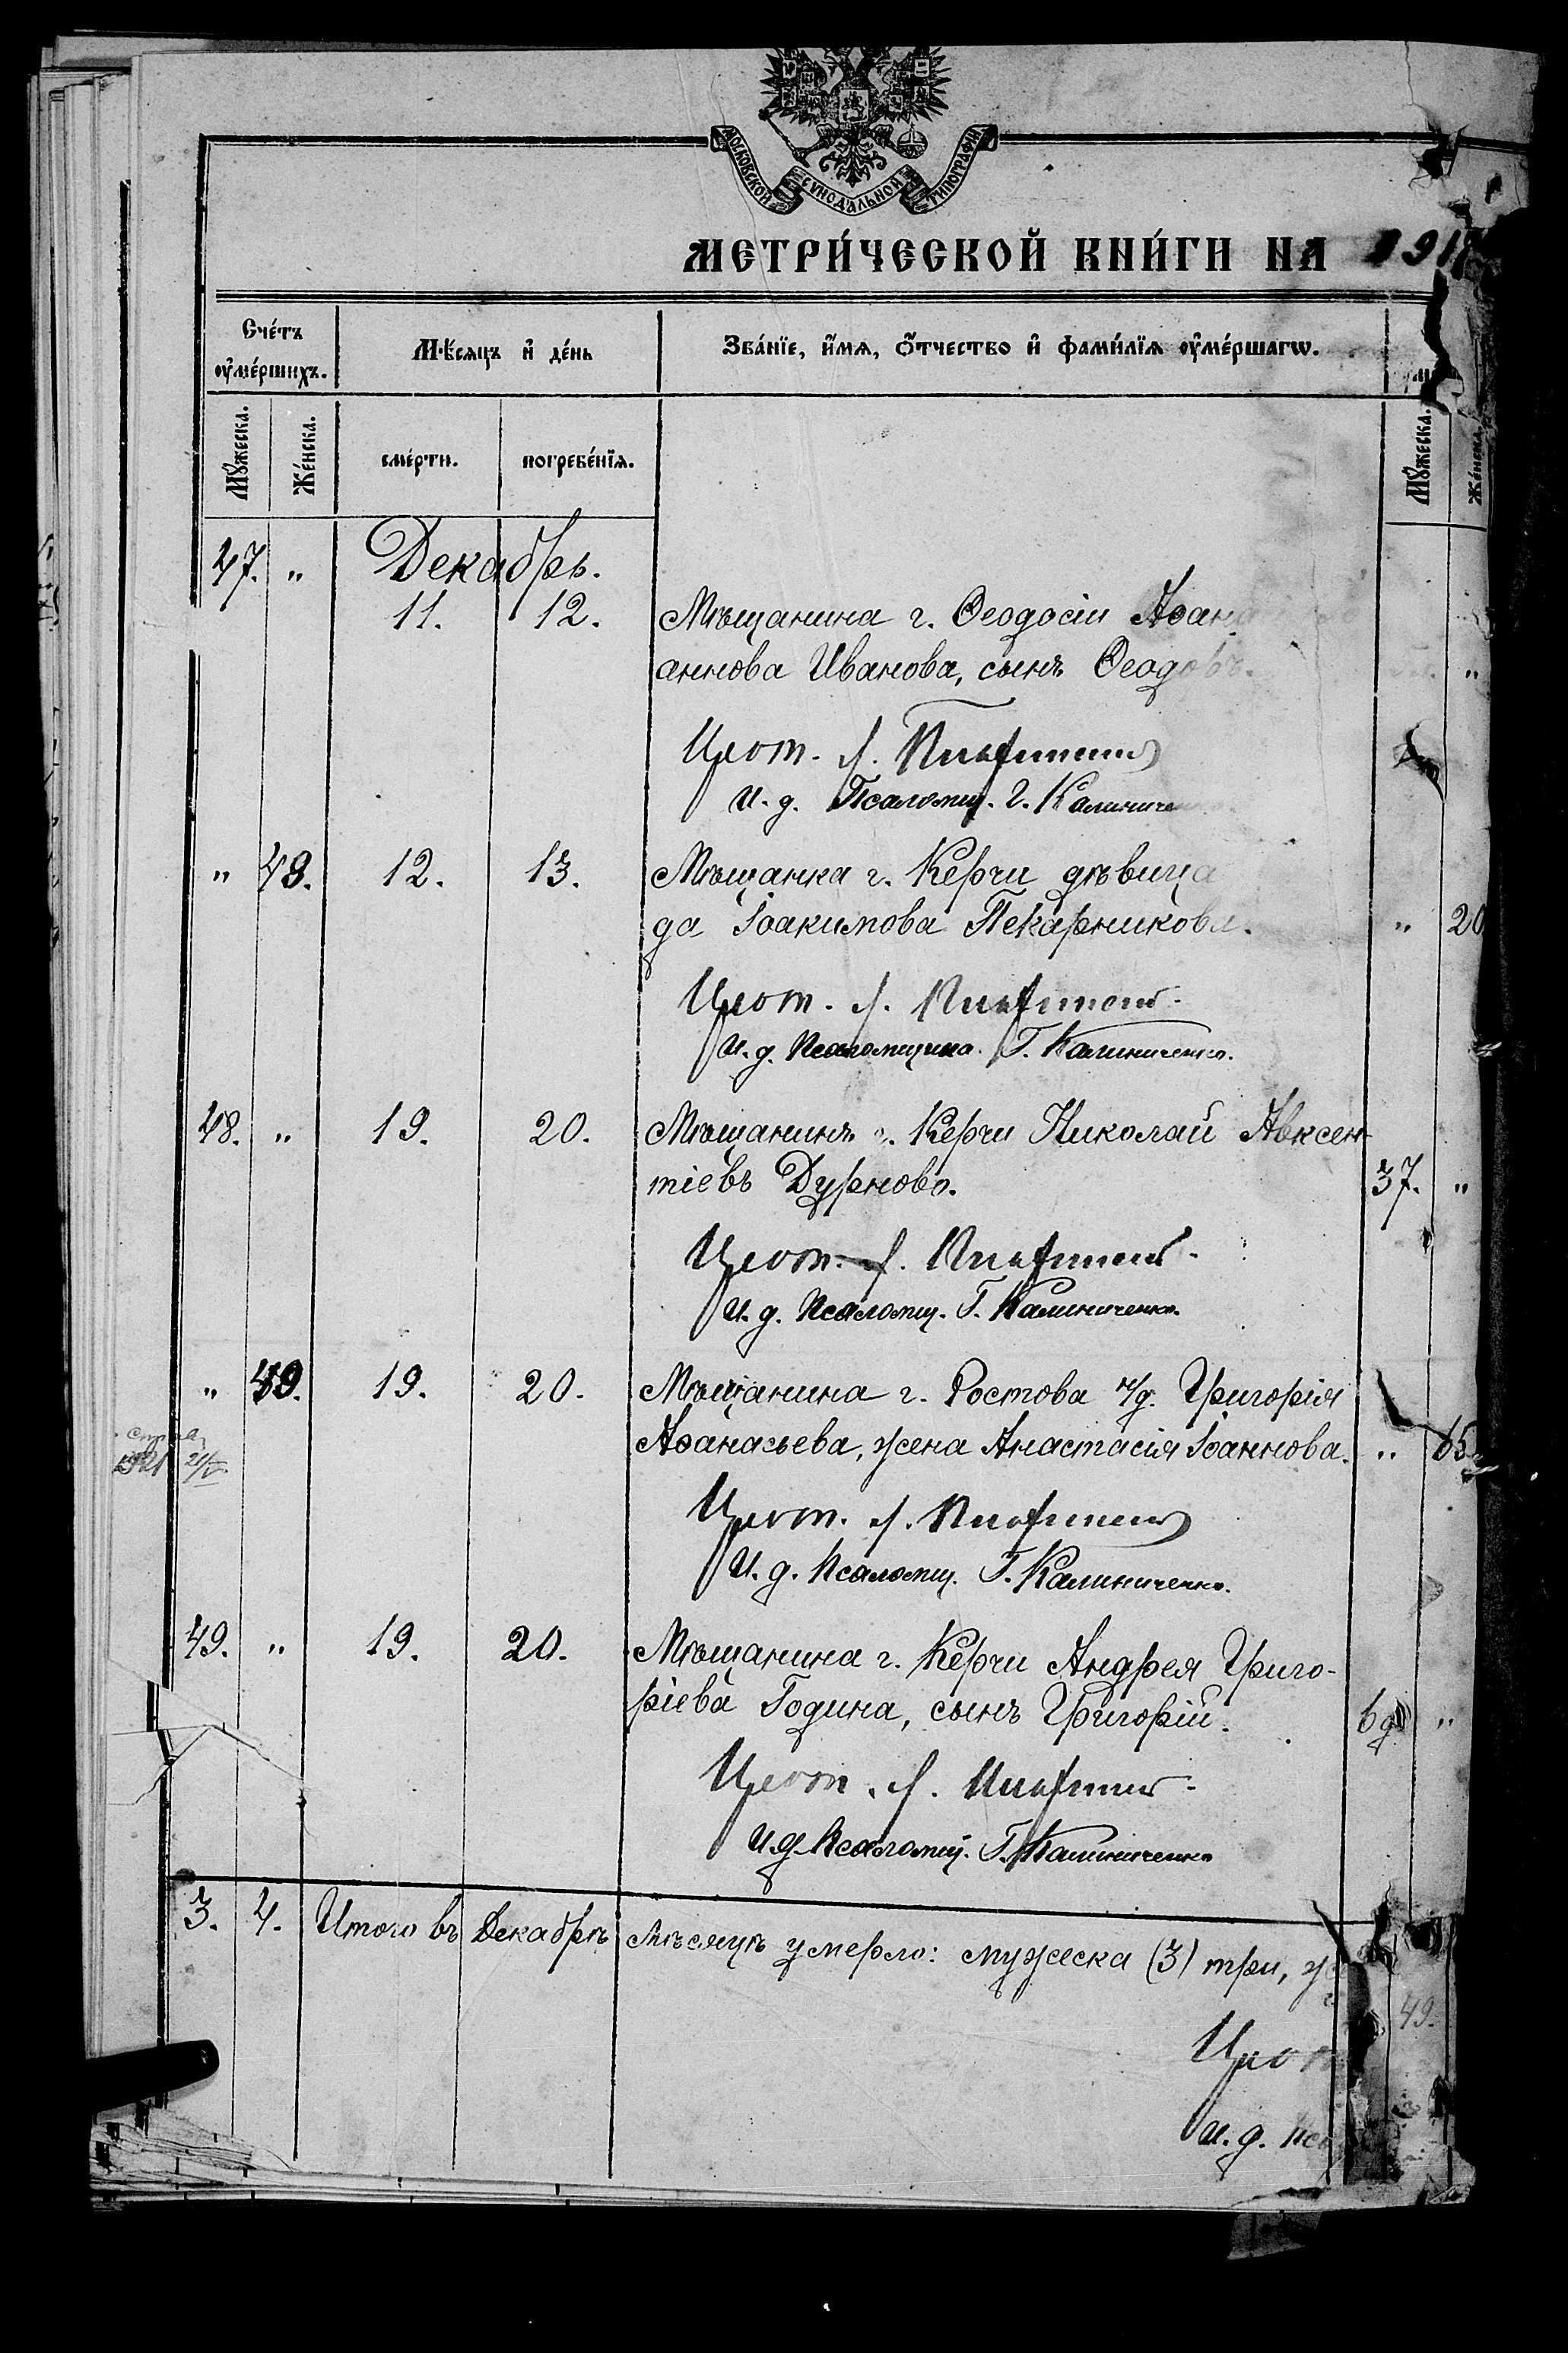 МОСКОВСКОЙ СѴНОДАЛЬНОЙ ТИПОГРАФІИ
МЕТРИ́ЧЕСКОЙ КНИ́ГИ НА 191
Сче́тъ ᲂу҆ме́ршихъ.
Мѣ́сяцъ и҆ де́нь
Зва́нїе, и҆́мѧ, ѻ҆́тчество и҆ фами́лїѧ ᲂу҆ме́ршагѡ.
Мꙋ́жеска.
Же́нска.
сме́рти.
погребе́нїѧ.
Мꙋ́жеска.
Же́нска.
47. " Декабрь.
11. 12. Мѣщанина г. Ѳеодосіи Аѳан
аннова Иванова, сынъ Ѳеод "
Прот. І.
И. д. Псаломщ. Г. Калиниче
" 48. 12. 13. Мѣщанка г. Керчи дѣвица
да Іоакимова Пекарникова. " 20
Прот. І.
И. д. Псаломщика Г. Калиниченко.
48. " 19. 20. Мѣщанинъ г. Керчи Николай Авксен-
тіевъ Дурново. 37. "
Прот. І.
И. д. Псаломщ. Г. Калиниченко.
" 49. 19. 20. Мѣщанина г. Ростова н/д. Григорія
Аѳанасьева, жена Анастасія Іоаннова. " 65
Прот. І.
И. д. Псаломщ. Г. Калиниченко.
49. " 19. 20. Мѣщанина г. Керчи Андрея Григо-
ріева Година, сынъ Григорій. "
Прот. І.
И. д. Псаломщ. Г. Калиниченко
3. 4. Итого въ Декабрѣ мѣсяцѣ умерло: мужеска (3) три,
49.
Прот
И. д. Пс